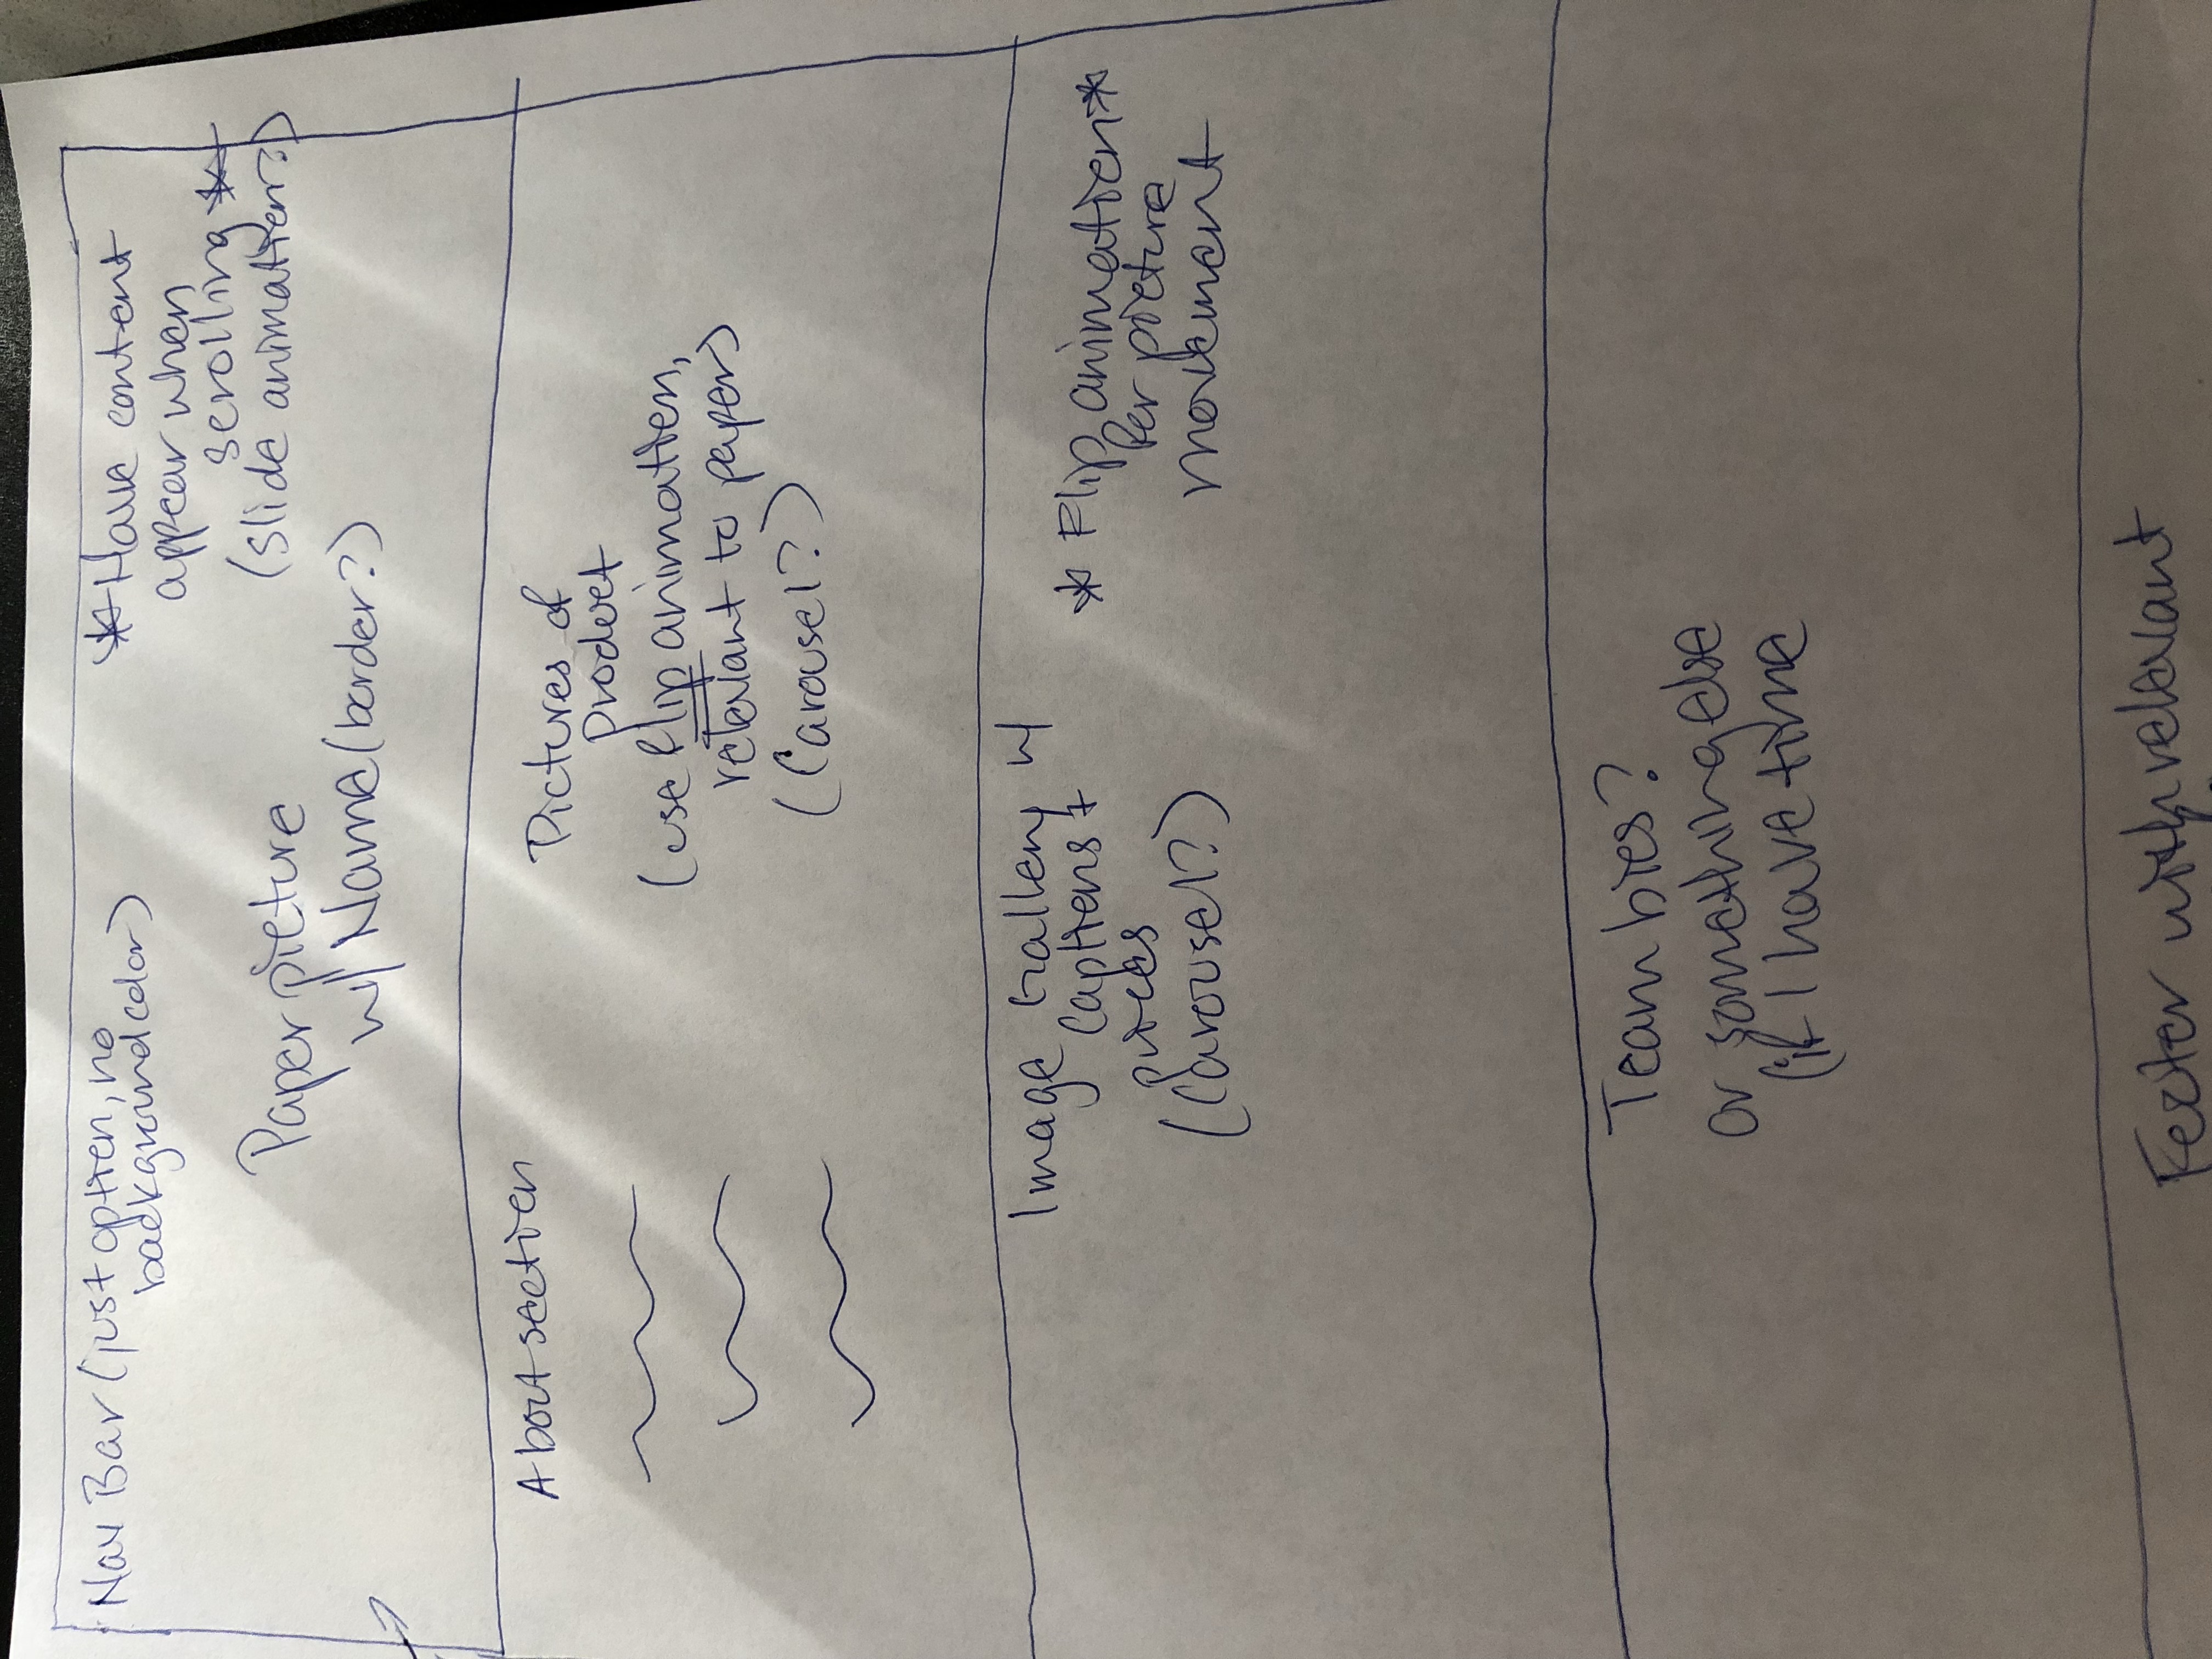 Nav Bar (just option, no
background color)
*Have content
appear when
scrolling*
(slide animation?)
Paper picture
w/ Name (border?)
About section
Pictures of
product
(use flip animation,
relevant to paper)
(Carousel?)
Image Gallery w/
Captions +
prices
(Carousel?)
* Flip animation*
Per picture
movement
Team bios?
or something else
(if I have time
Footer with relevant